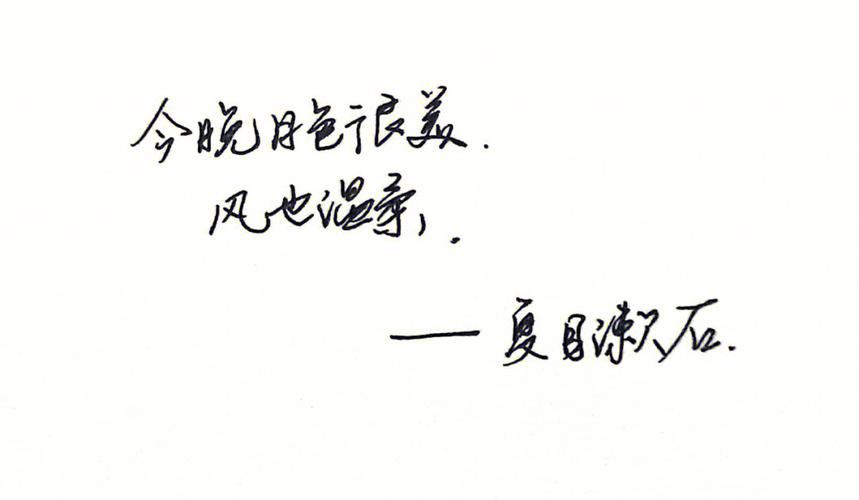 今晚月色很美.
风也温柔.
——夏目漱石.